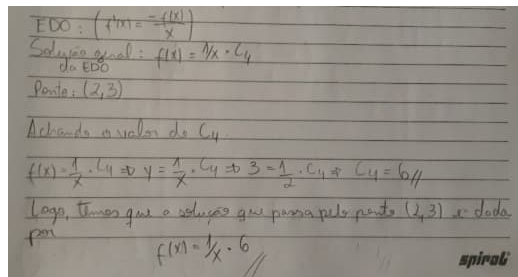 EDO: (f'(x) = -f(x)/x)
Solução geral: f(x) = 1/x · C4
da EDO
Ponto: (2,3)
Achando o valor de C4
f(x) = 1/x · C4 ⇒ y = 1/x · C4 ⇒ 3 = 1/2 · C4 ⇒ C4 = 6//
Logo, temos que a solução que passa pelo ponto (2,3) é dada
por
f(x) = 1/x · 6 //
spiral